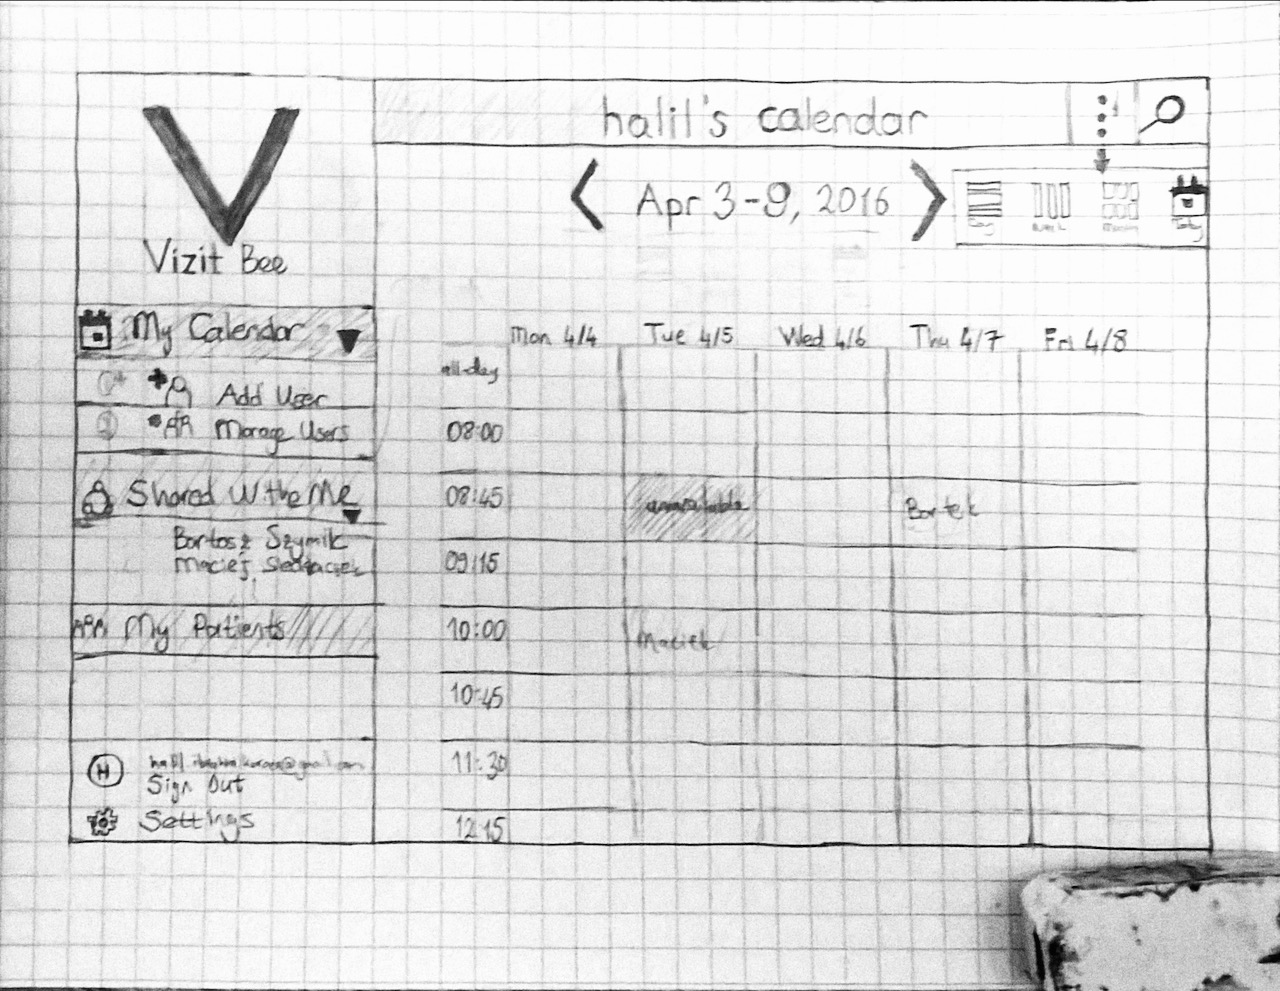 halil's calendar
V
Vizit Bee
Apr 3-9, 2016
Day Week Month Today
My Calendar
Add User
Manage Users
Shared Withe Me
Bartosz Szymik
Maciej
My Patients
H
Sign Out
Settings
Mon 4/4 Tue 4/5 Wed 4/6 Thu 4/7 Fri 4/8
all-day
08:00
08:45 unavailable Bartek
09:15
10:00 Maciek
10:45
11:30
12:15